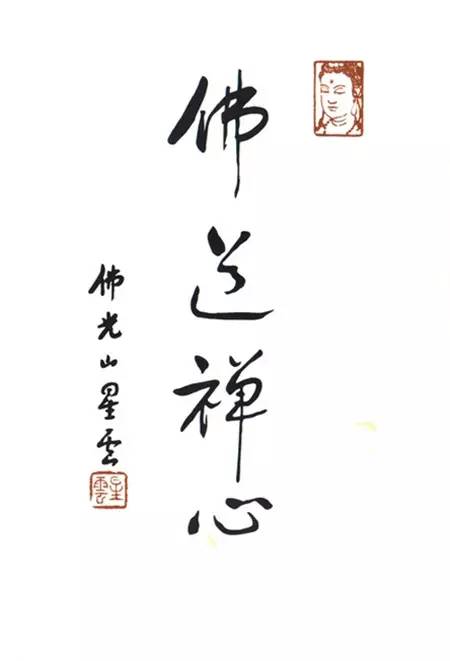 佛道禅心
佛光山星云
星雲